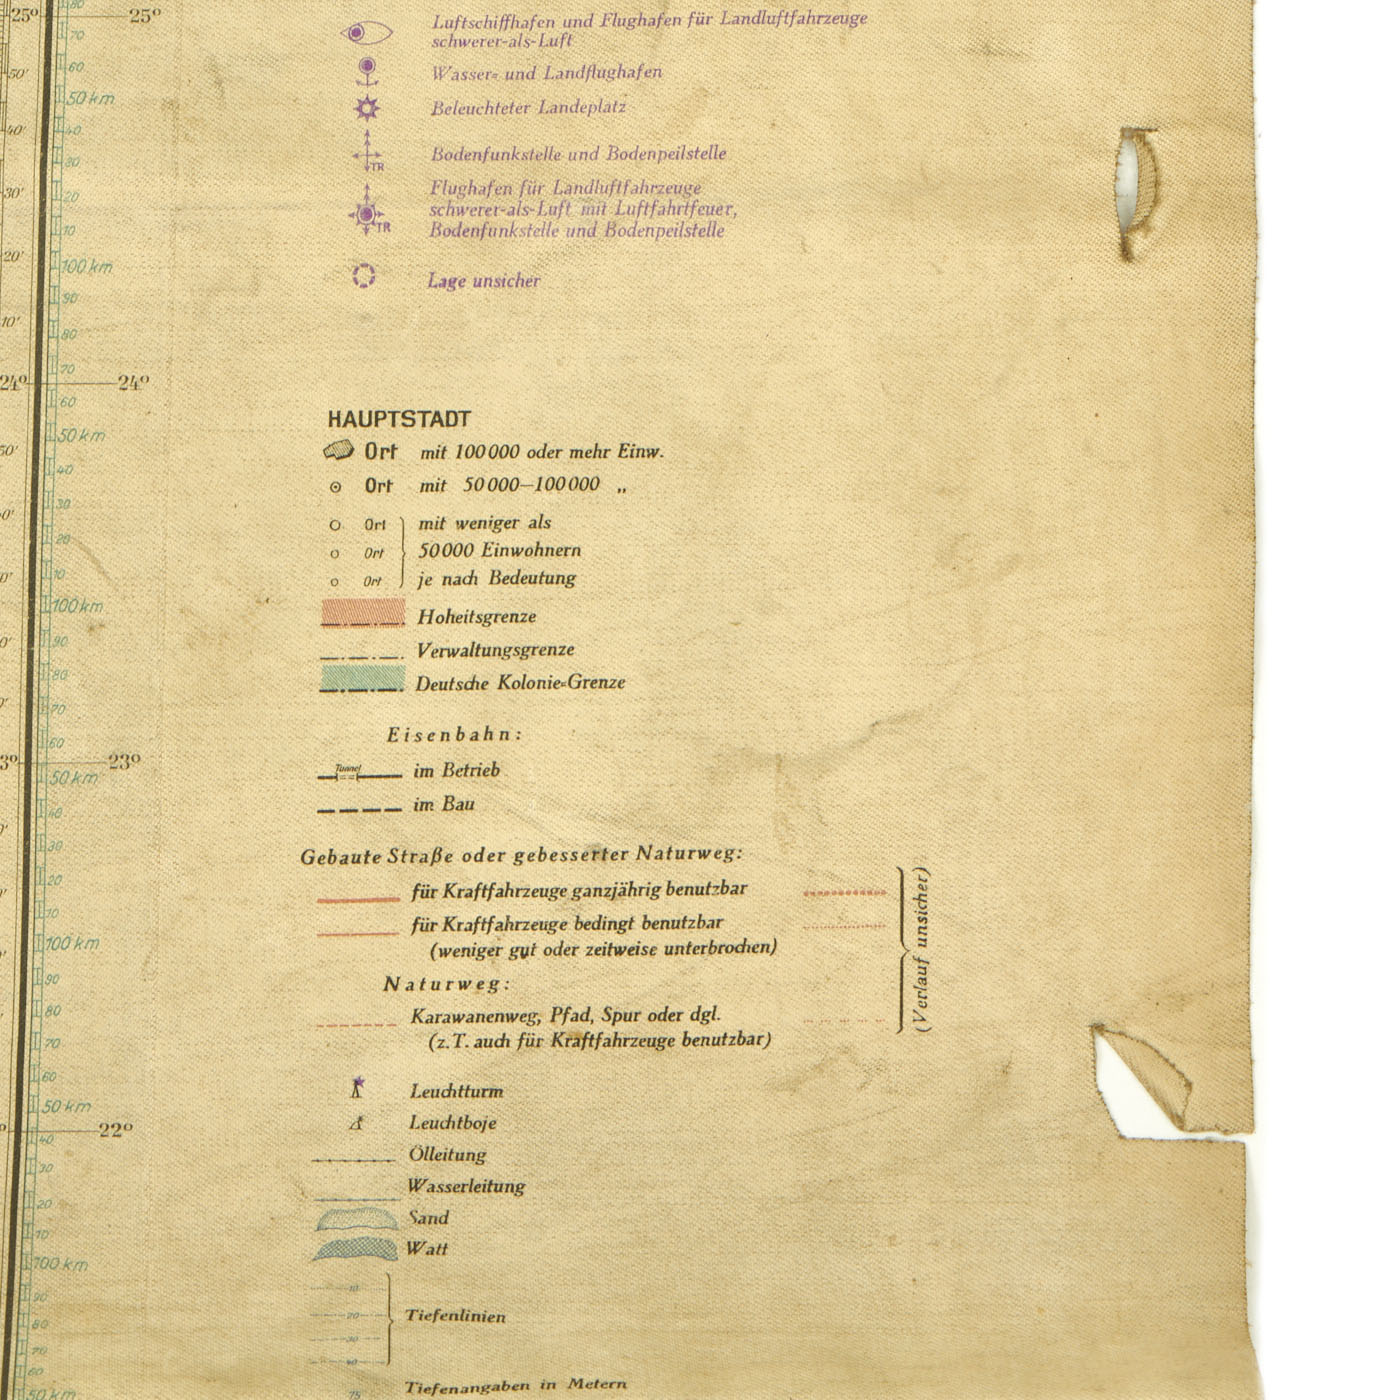 Luftschiffhafen und Flughafen für Landluftfahrzeuge
schwerer-als-Luft
Wasser= und Landflughafen
Beleuchteter Landeplatz
Bodenfunkstelle und Bodenpeilstelle
TR
Flughafen für Landluftfahrzeuge
schwerer-als-Luft mit Luftfahrtfeuer,
TR Bodenfunkstelle und Bodenpeilstelle
Lage unsicher
HAUPTSTADT
Ort mit 100000 oder mehr Einw.
Ort mit 50000–100000 „
Ort mit weniger als
Ort 50000 Einwohnern
Ort je nach Bedeutung
Hoheitsgrenze
Verwaltungsgrenze
Deutsche Kolonie=Grenze
Eisenbahn:
Tunnel im Betrieb
im Bau
Gebaute Straße oder gebesserter Naturweg:
für Kraftfahrzeuge ganzjährig benutzbar
für Kraftfahrzeuge bedingt benutzbar
(weniger gut oder zeitweise unterbrochen)
Naturweg:
Karawanenweg, Pfad, Spur oder dgl.
(z.T. auch für Kraftfahrzeuge benutzbar)
(Verlauf unsicher)
Leuchtturm
Leuchtboje
Ölleitung
Wasserleitung
Sand
Watt
10
20
Tiefenlinien
30
40
75 Tiefenangaben in Metern
25° 25°
70
60
50 km
40
30
20
10
100 km
90
80
70
24° 24°
60
50 km
40
30
20
10
100 km
90
80
70
60
23°
50 km
40
30
20
10
100 km
90
80
70
60
50 km
22°
40
30
20
10
100 km
90
80
70
60
50 km
50'
40'
30'
20'
10'